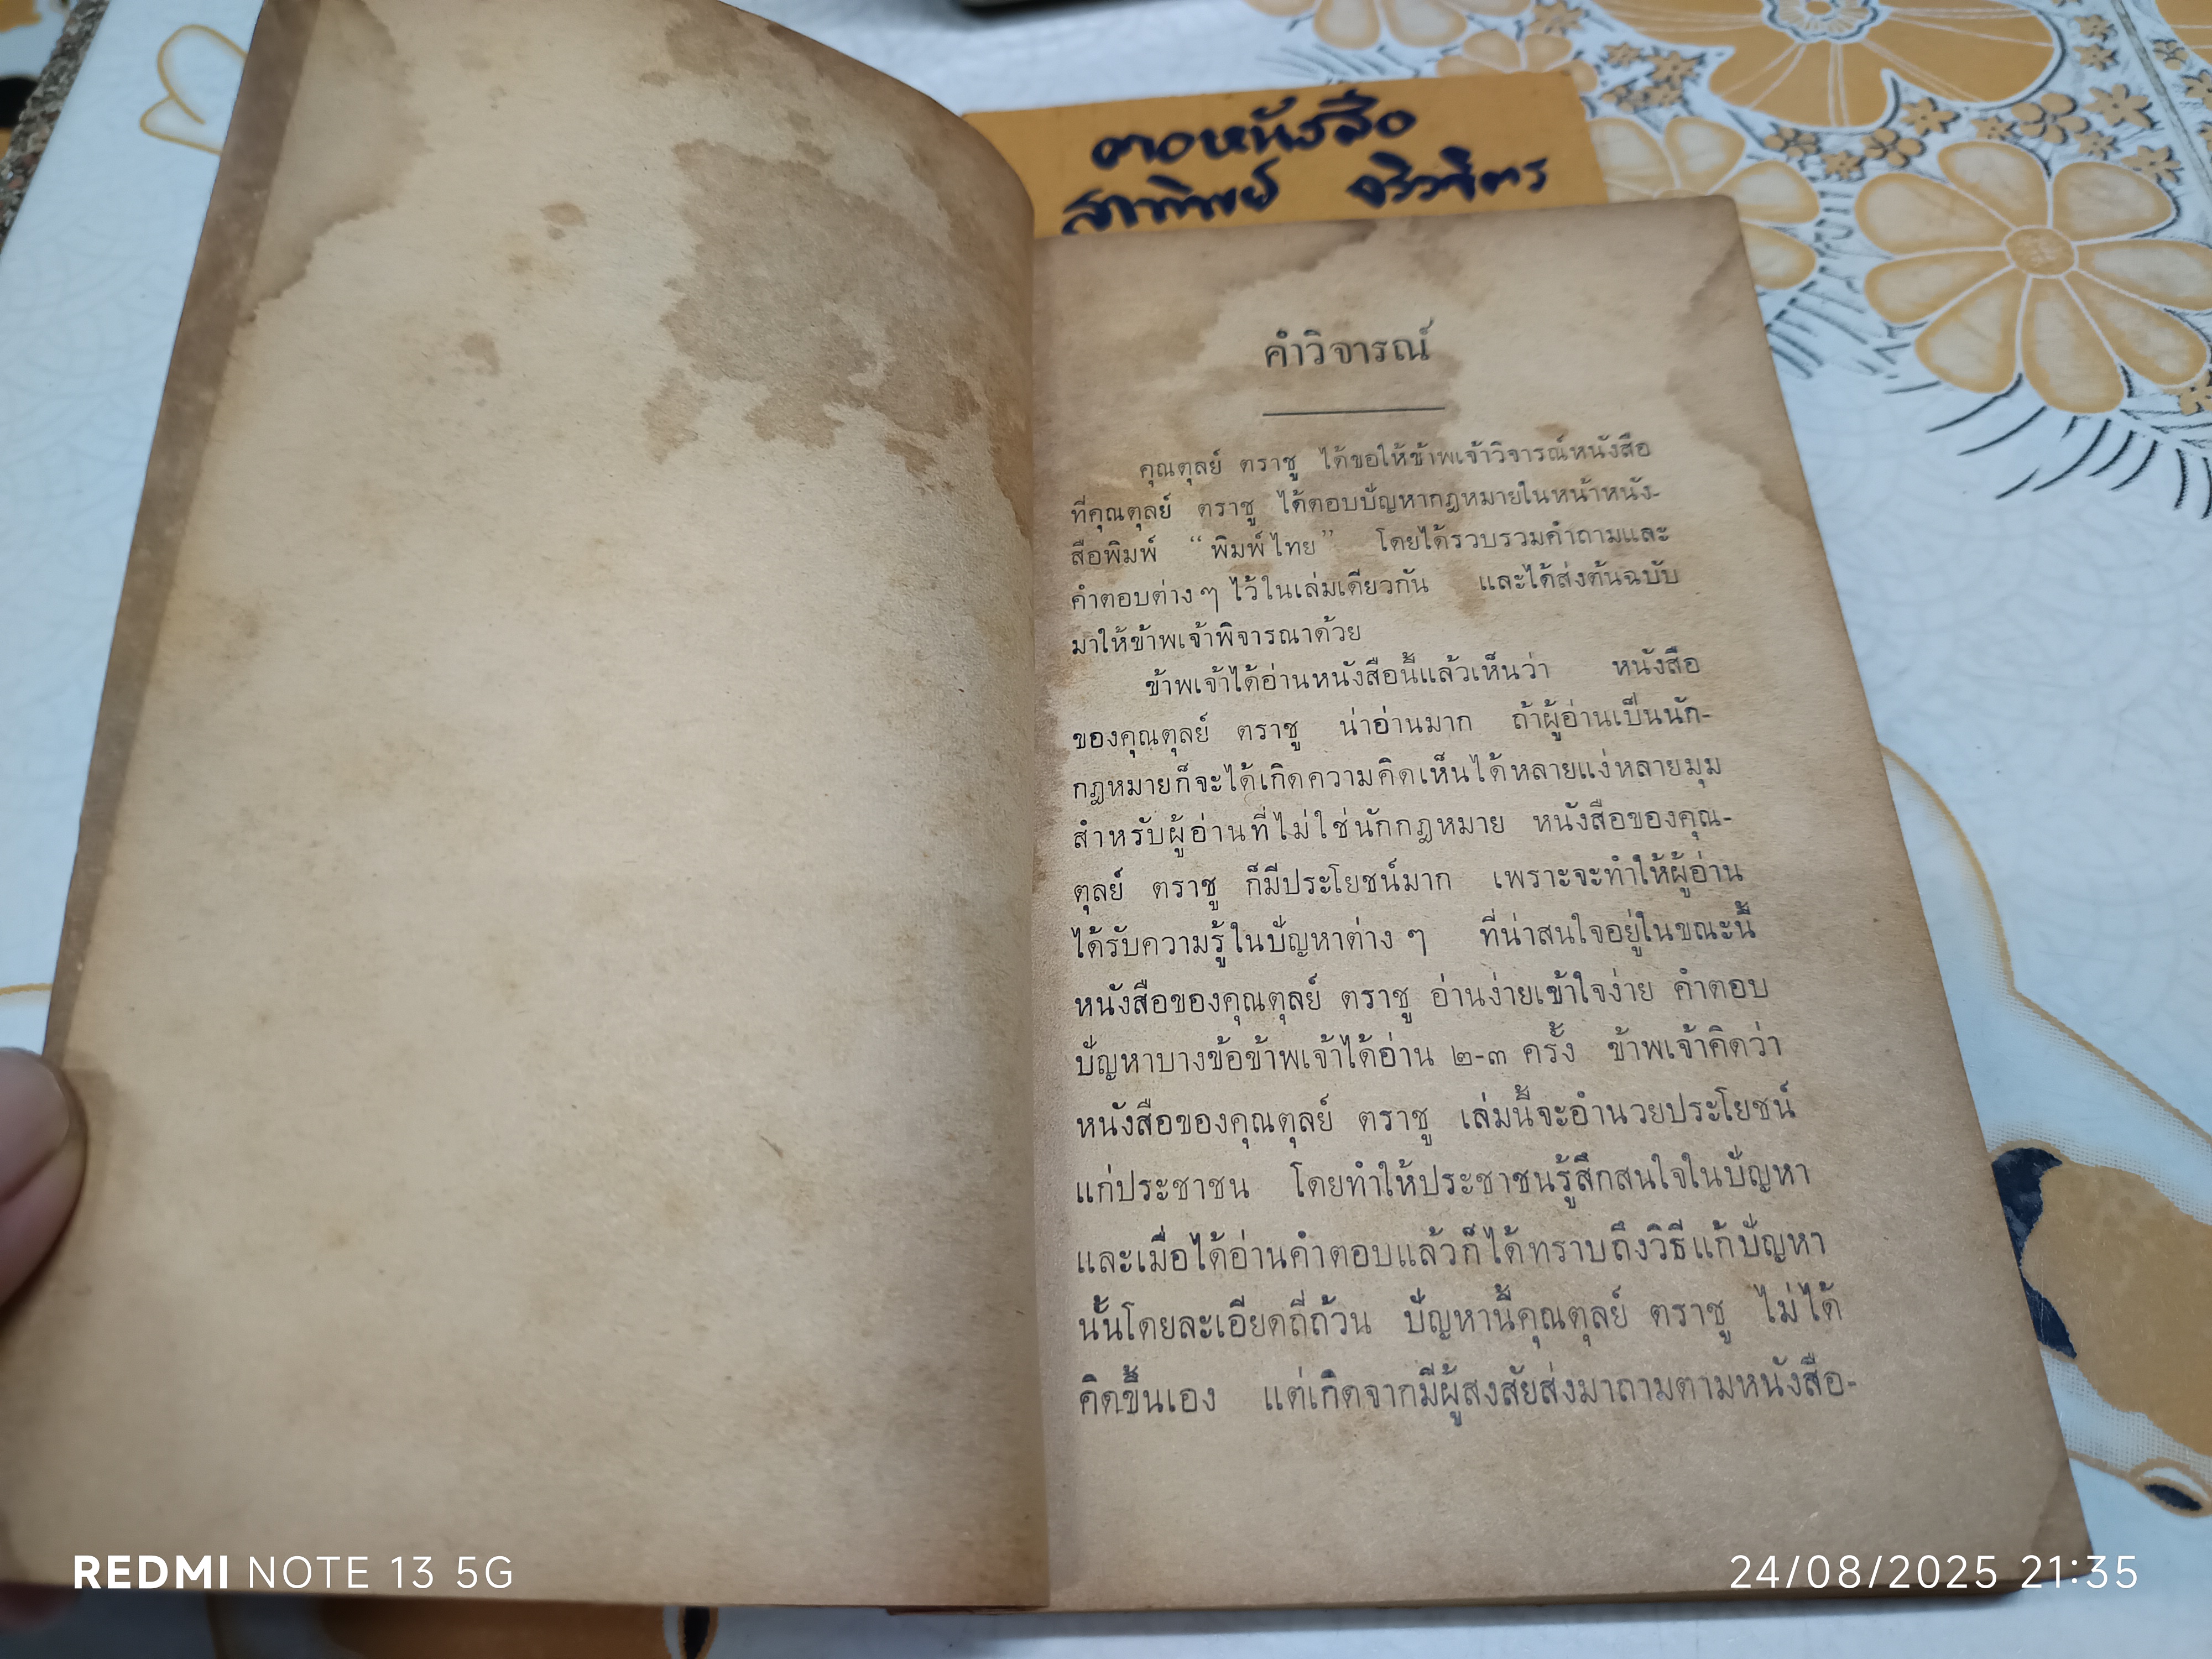 ตอหนังสือ
สาทิพย์ จริวจิตร
คำวิจารณ์
คุณตุลย์ ตราชู ได้ขอให้ข้าพเจ้าวิจารณ์หนังสือ
ที่คุณตุลย์ ตราชู ได้ตอบปัญหากฎหมายในหน้าหนัง-
สือพิมพ์ “พิมพ์ไทย” โดยได้รวบรวมคำถามและ
คำตอบต่าง ๆ ไว้ในเล่มเดียวกัน และได้ส่งต้นฉบับ
มาให้ข้าพเจ้าพิจารณาด้วย
ข้าพเจ้าได้อ่านหนังสือนี้แล้วเห็นว่า หนังสือ
ของคุณตุลย์ ตราชู น่าอ่านมาก ถ้าผู้อ่านเป็นนัก-
กฎหมายก็จะได้เกิดความคิดเห็นได้หลายแง่หลายมุม
สำหรับผู้อ่านที่ไม่ใช่นักกฎหมาย หนังสือของคุณ-
ตุลย์ ตราชู ก็มีประโยชน์มาก เพราะจะทำให้ผู้อ่าน
ได้รับความรู้ในปัญหาต่าง ๆ ที่น่าสนใจอยู่ในขณะนี้
หนังสือของคุณตุลย์ ตราชู อ่านง่ายเข้าใจง่าย คำตอบ
ปัญหาบางข้อข้าพเจ้าได้อ่าน ๒-๓ ครั้ง ข้าพเจ้าคิดว่า
หนังสือของคุณตุลย์ ตราชู เล่มนี้จะอำนวยประโยชน์
แก่ประชาชน โดยทำให้ประชาชนรู้สึกสนใจในปัญหา
และเมื่อได้อ่านคำตอบแล้วก็ได้ทราบถึงวิธีแก้ปัญหา
นั้นโดยละเอียดถี่ถ้วน ปัญหานี้คุณตุลย์ ตราชู ไม่ได้
คิดขึ้นเอง แต่เกิดจากมีผู้สงสัยส่งมาถามตามหนังสือ-
REDMI NOTE 13 5G
24/08/2025 21:35